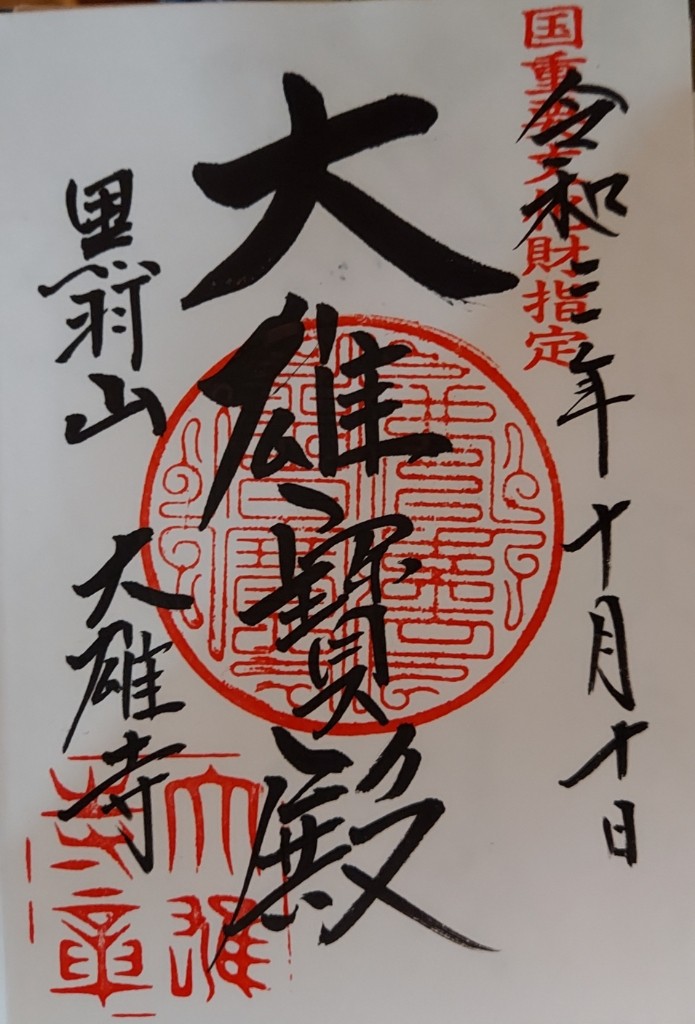 国重要文化財指定
令和三年十月十日
大雄寳殿
黒羽山
大雄寺
大雄
寺章